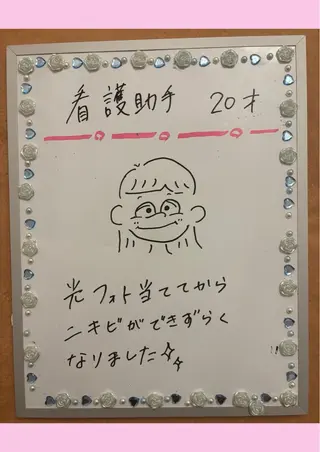 看護助手 20才
光フォト当ててから
ニキビができずらく
なりました